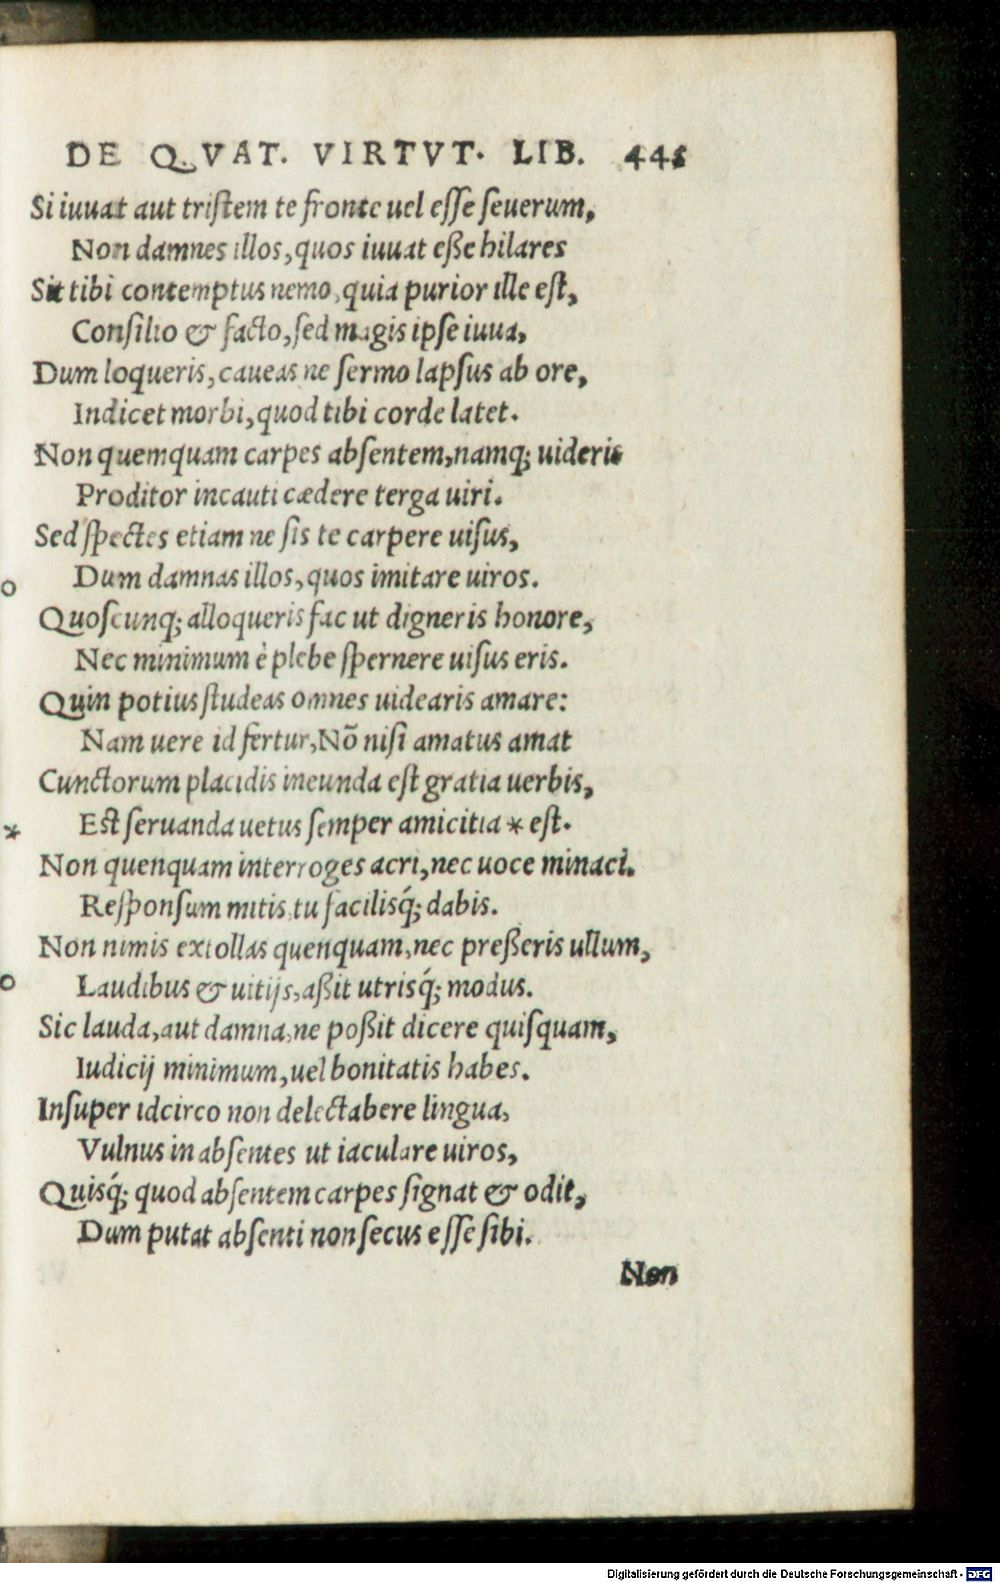 DE QVAT. VIRTVT. LIB. 445
Si iuuat aut tristem te fronte uel esse seuerum,
Non damnes illos, quos iuuat eße hilares
Sit tibi contemptus nemo, quia purior ille est,
Consilio & facto, sed magis ipse iuua,
Dum loqueris, caueas ne sermo lapsus ab ore,
Indicet morbi, quod tibi corde latet.
Non quemquam carpes absentem, namq; uideris
Proditor incauti cædere terga uiri.
Sed spectes etiam ne sis te carpere uisus,
Dum damnas illos, quos imitare uiros.
Quoscunq; alloqueris fac ut digneris honore,
Nec minimum è plebe spernere uisus eris.
Quin potius studeas omnes uidearis amare:
Nam uere id fertur, Nō nisi amatus amat
Cunctorum placidis ineunda est gratia uerbis,
* Est seruanda uetus semper amicitia * est.
Non quenquam interroges acri, nec uoce minaci.
Responsum mitis tu facilisq́; dabis.
Non nimis extollas quenquam, nec preßeris ullum,
Laudibus & uitijs, aßit utrisq́; modus.
Sic lauda, aut damna, ne poßit dicere quisquam,
Iudicij minimum, uel bonitatis habes.
Insuper idcirco non delectabere lingua,
Vulnus in absentes ut iaculare uiros,
Quisq́; quod absentem carpes signat & odit,
Dum putat absenti non secus esse sibi.
Non
Digitalisierung gefördert durch die Deutsche Forschungsgemeinschaft - DFG